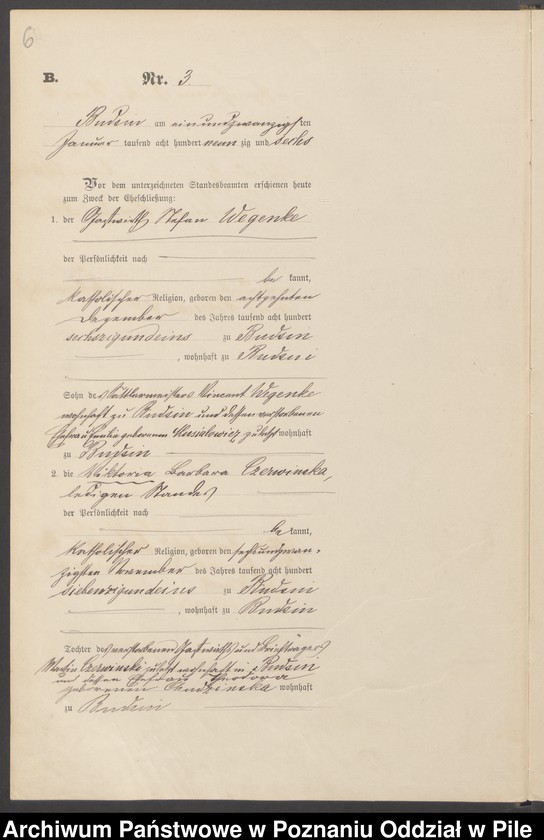 6
B. Nr. 3.
Budsin am einundzwanzigsten
Januar tausend acht hundert neun zig und sechs
Vor dem unterzeichneten Standesbeamten erschienen heute
zum Zweck der Eheschließung:
1. der Gastwirth Stefan Wegenke
der Persönlichkeit nach
be kannt,
katholischer Religion, geboren den achtzehnten
Dezember des Jahres tausend acht hundert
sechszigundeins zu Budsin
, wohnhaft zu Budsin
Sohn des Sattlermeisters Vincent Wegenke
wohnhaft zu Budsin und dessen verstorbenen
Ehefrau Emilie geborenen zuletzt wohnhaft
zu Budsin
2. die Viktoria Barbara Czerwinska,
ledigen Standes
der Persönlichkeit nach
be kannt,
katholischer Religion, geboren den sechsundzwan-
zigsten November des Jahres tausend acht hundert
siebenzigundeins zu Budsin
, wohnhaft zu Budsin
Tochter des verstorbenen Gastwirths und Briefträgers
Martin Czerwinski zuletzt wohnhaft in Budsin
und dessen Ehefrau Theodora
geborenen wohnhaft
zu Budsin
Archiwum Państwowe w Poznaniu Oddział w Pile